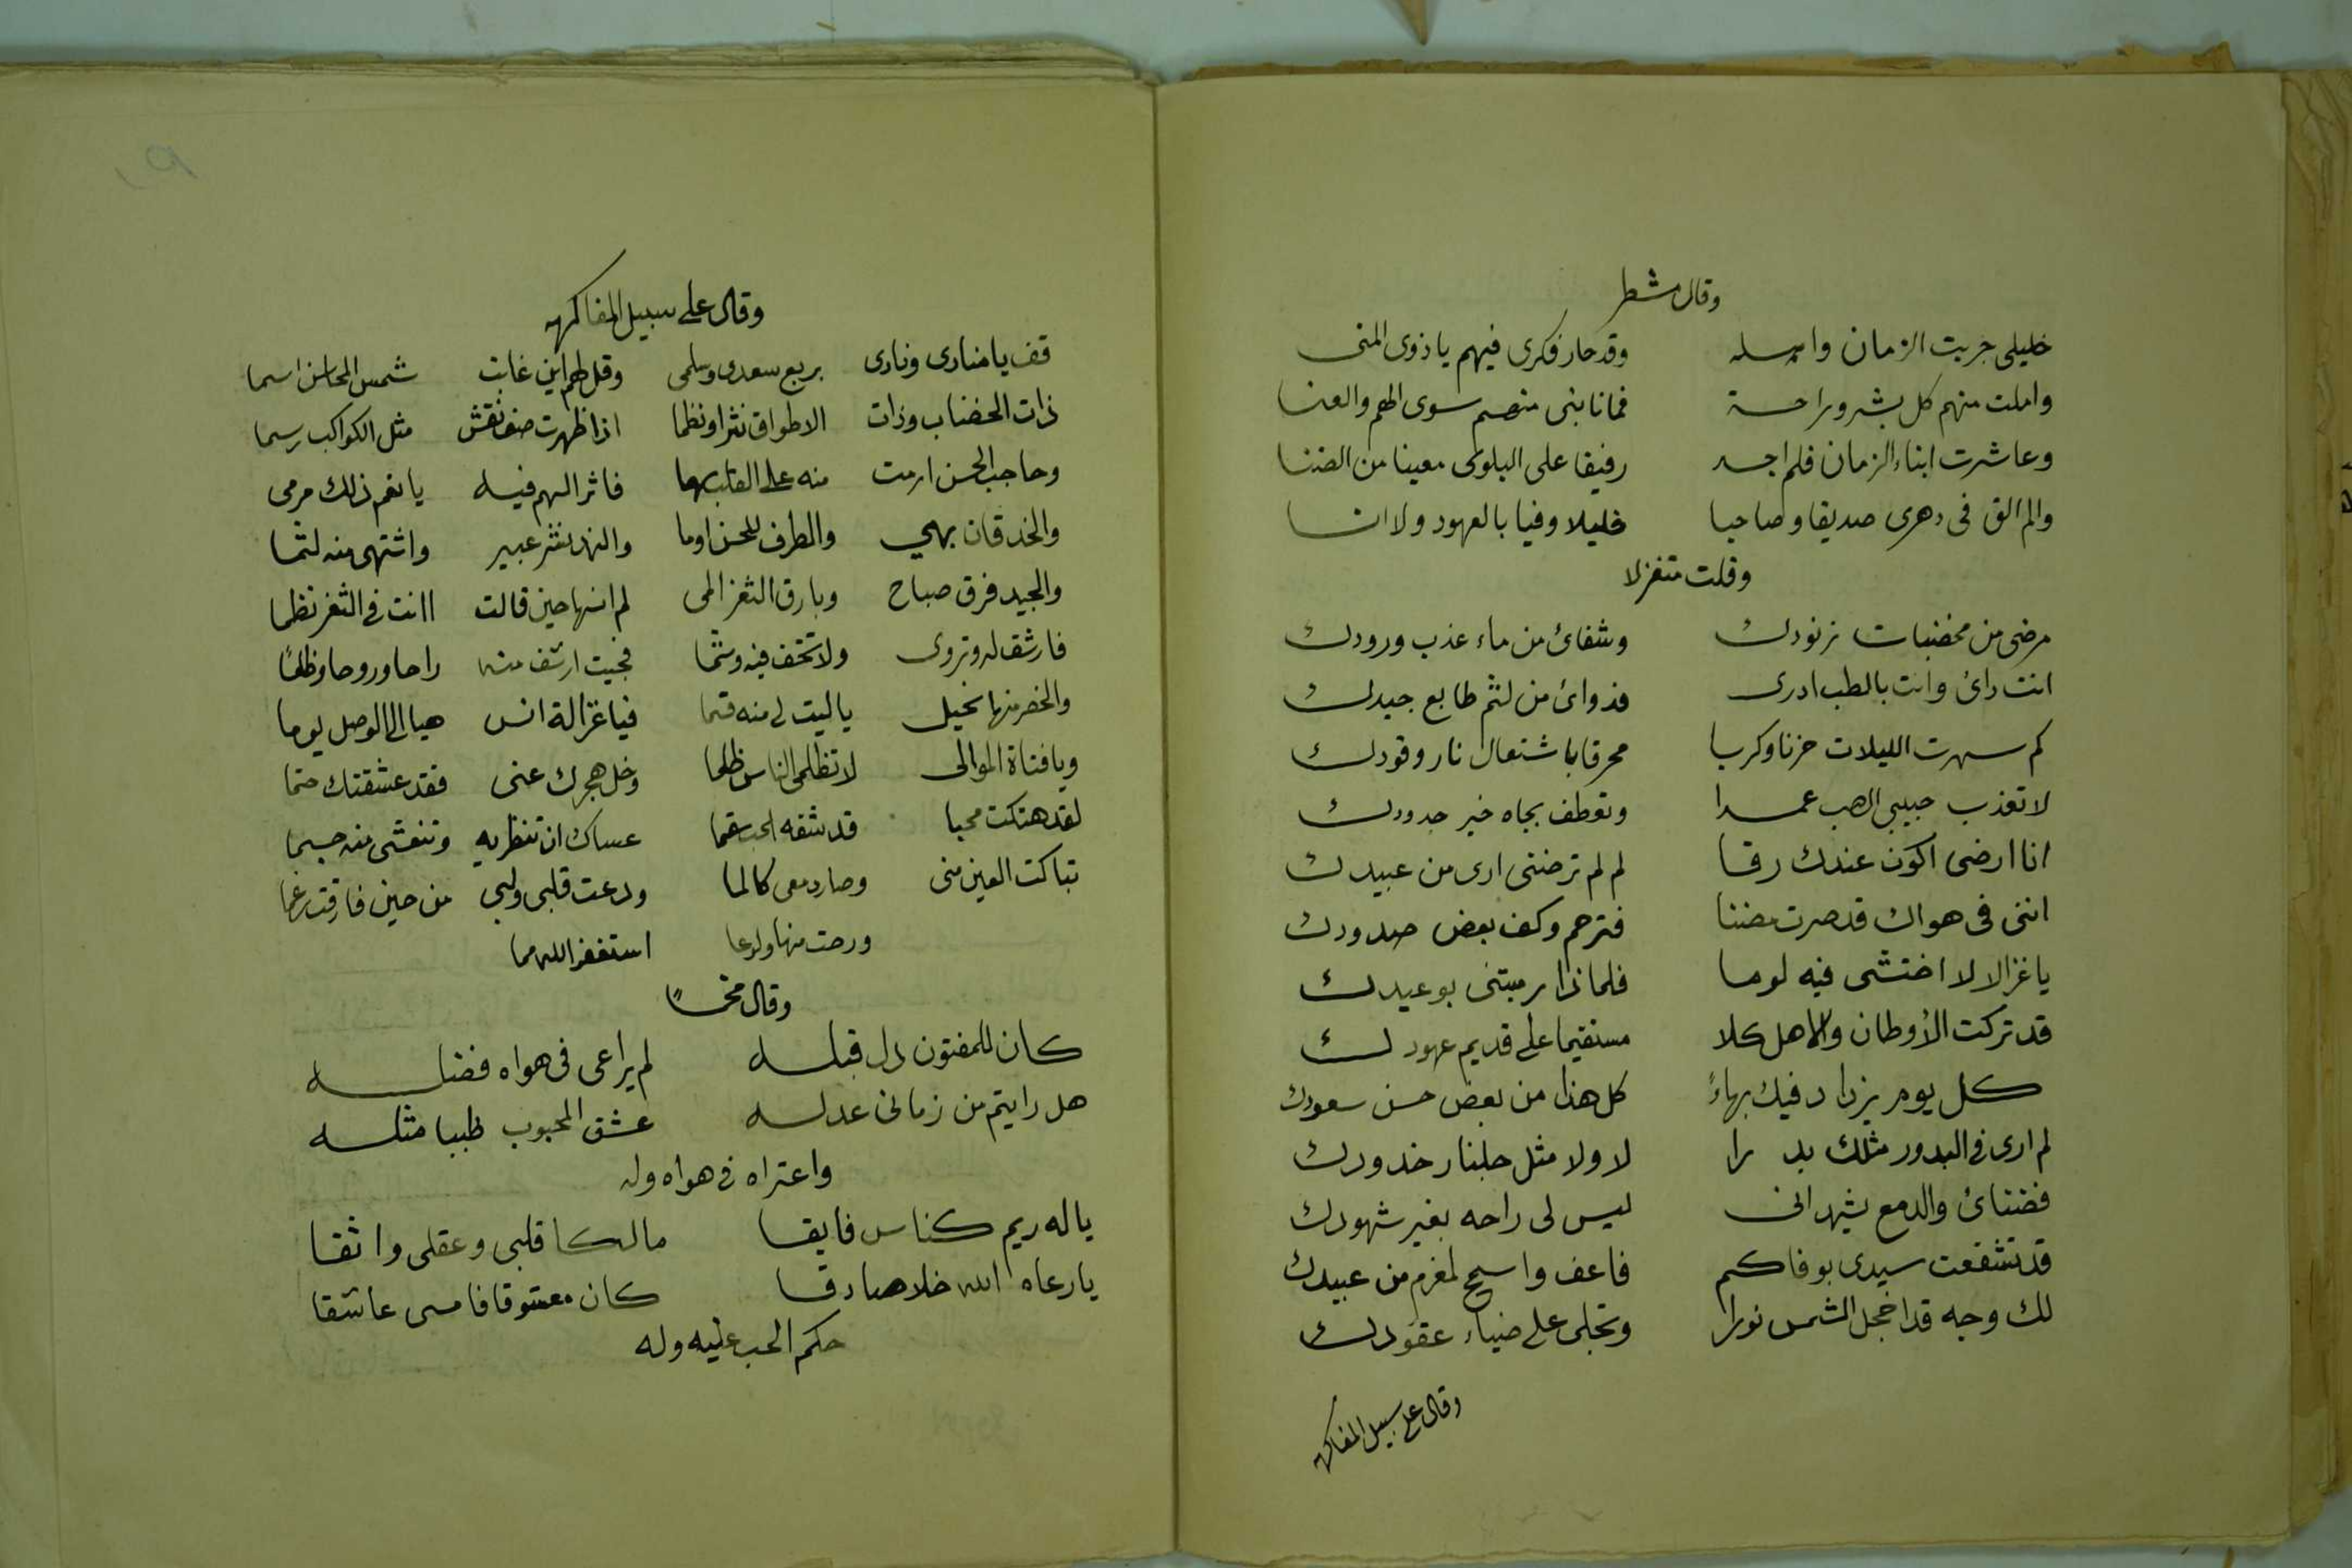 وقال مشطر
خليلى جربت الزمان واهله وقد حار فكرى فيهم ياذوى المنى
واملت منهم كل بشر وراحة فما نابنى منهم سوى الهم والعنا
وعاشرت ابناء الزمان فلم اجد رفيقا على البلوى معينا من الضنا
ولم الق فى دهرى صديقا وصاحبا خليلا وفيا بالعهود ولا انا
وقلت متغزلا
مرضى من مخضبات زنودك وشفائ من ماء عذب ورودك
انت دائ وانت بالطب ادرى فدوائ من لثم طابع جيدك
كم سهرت الليلات حزنا وكربا محرقا باشتعال نار وقودك
لا تعذب حبيبى الصب عمدا وتعطف بجاه خير جدودك
انا ارضى اكون عندك رقا لم لم ترضنى ارى من عبيدك
اننى فى هواك قد صرت مضنا فترحم وكف بعض صدودك
ياغزالا لا اختشى فيه لوما فلماذا رميتنى بوعيدك
قد تركت الأوطان والاهل كلا مستقيما على قديم عهودك
كل يوم يزداد فيك بهاءً كل هذا من بعض حسن سعودك
لم ارى فى البدور مثلك بدرا لا ولا مثل جلنار خدودك
فضنائ والدمع يشهد انى ليس لى راحه بغير شهودك
قد تشفعت سيدى بوفاكم فاعف واسمح لمغرم من عبيدك
لك وجه قد اخجل الشمس نورا وتجلى على ضياء عقودك
وقال على سبيل المفاكهه
وقال على سبيل المفاكهه
قف يا منادى ونادى بربع سعدى وسلمى وقل لهم اين غابت شمس المحاسن اسما
ذات الخضاب وذات الاطواق نثرا ونظما اذا ظهرت صف نقش مثل الكواكب رسما
وحاجب الحسن ارمت منه على القلب سهما فاثر السهم فيه يا نعم ذلك مرمى
والخد قان بهي والطرف للحسن اوما والنهد نشر عبير واشتهى منه لثما
والجيد فرق صباح وبارق الثغر المى لم انسها حين قالت اانت فى الثغر نظما
فارشق له وتروى ولا تخف فيه وشما فجيت ارشف منه راحا وروحا وظلمًا
والخصر منها نحيل ياليت لى منه قسما فيا غزالة انس هيا الى الوصل يوما
ويا فتاة الموالى لا تظلمى الناس ظلما وخل هجرك عنى فقد عشقتك حتما
لقد هتكت محبا قد شفه الحب سقما عساك ان تنظريه وتنعشى منه جسما
تباكت العين منى وصار دمعى كالما ودعت قلبى ولبى من حين فارقت رغما
ورحت منها ولوعا استغفر الله مما
وقال مخمسًا
كان للمفتون دل قبله لم يراعى فى هواه فضله
هل رايتم من زمانى عدله عشق المحبوب ظبيا مثله
واعتراه فى هواه وله
ياله ريم كناس فايقا مالكا قلبى وعقلى واثقا
يارعاه الله خلا صادقا كان معشوقا فامسى عاشقا
حكم الحب عليه وله